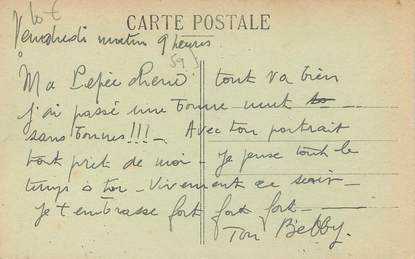 lot
CARTE POSTALE
Vendredi matin 9 heures
59
Ma Pépée chérie tout va bien
j'ai passé une bonne nuit
sans bonnes!!! - Avec ton portrait
tout prêt de moi - Je pense tout le
temps à toi - Vivement ce soir -
Je t'embrasse fort fort fort -
Ton Bébby.